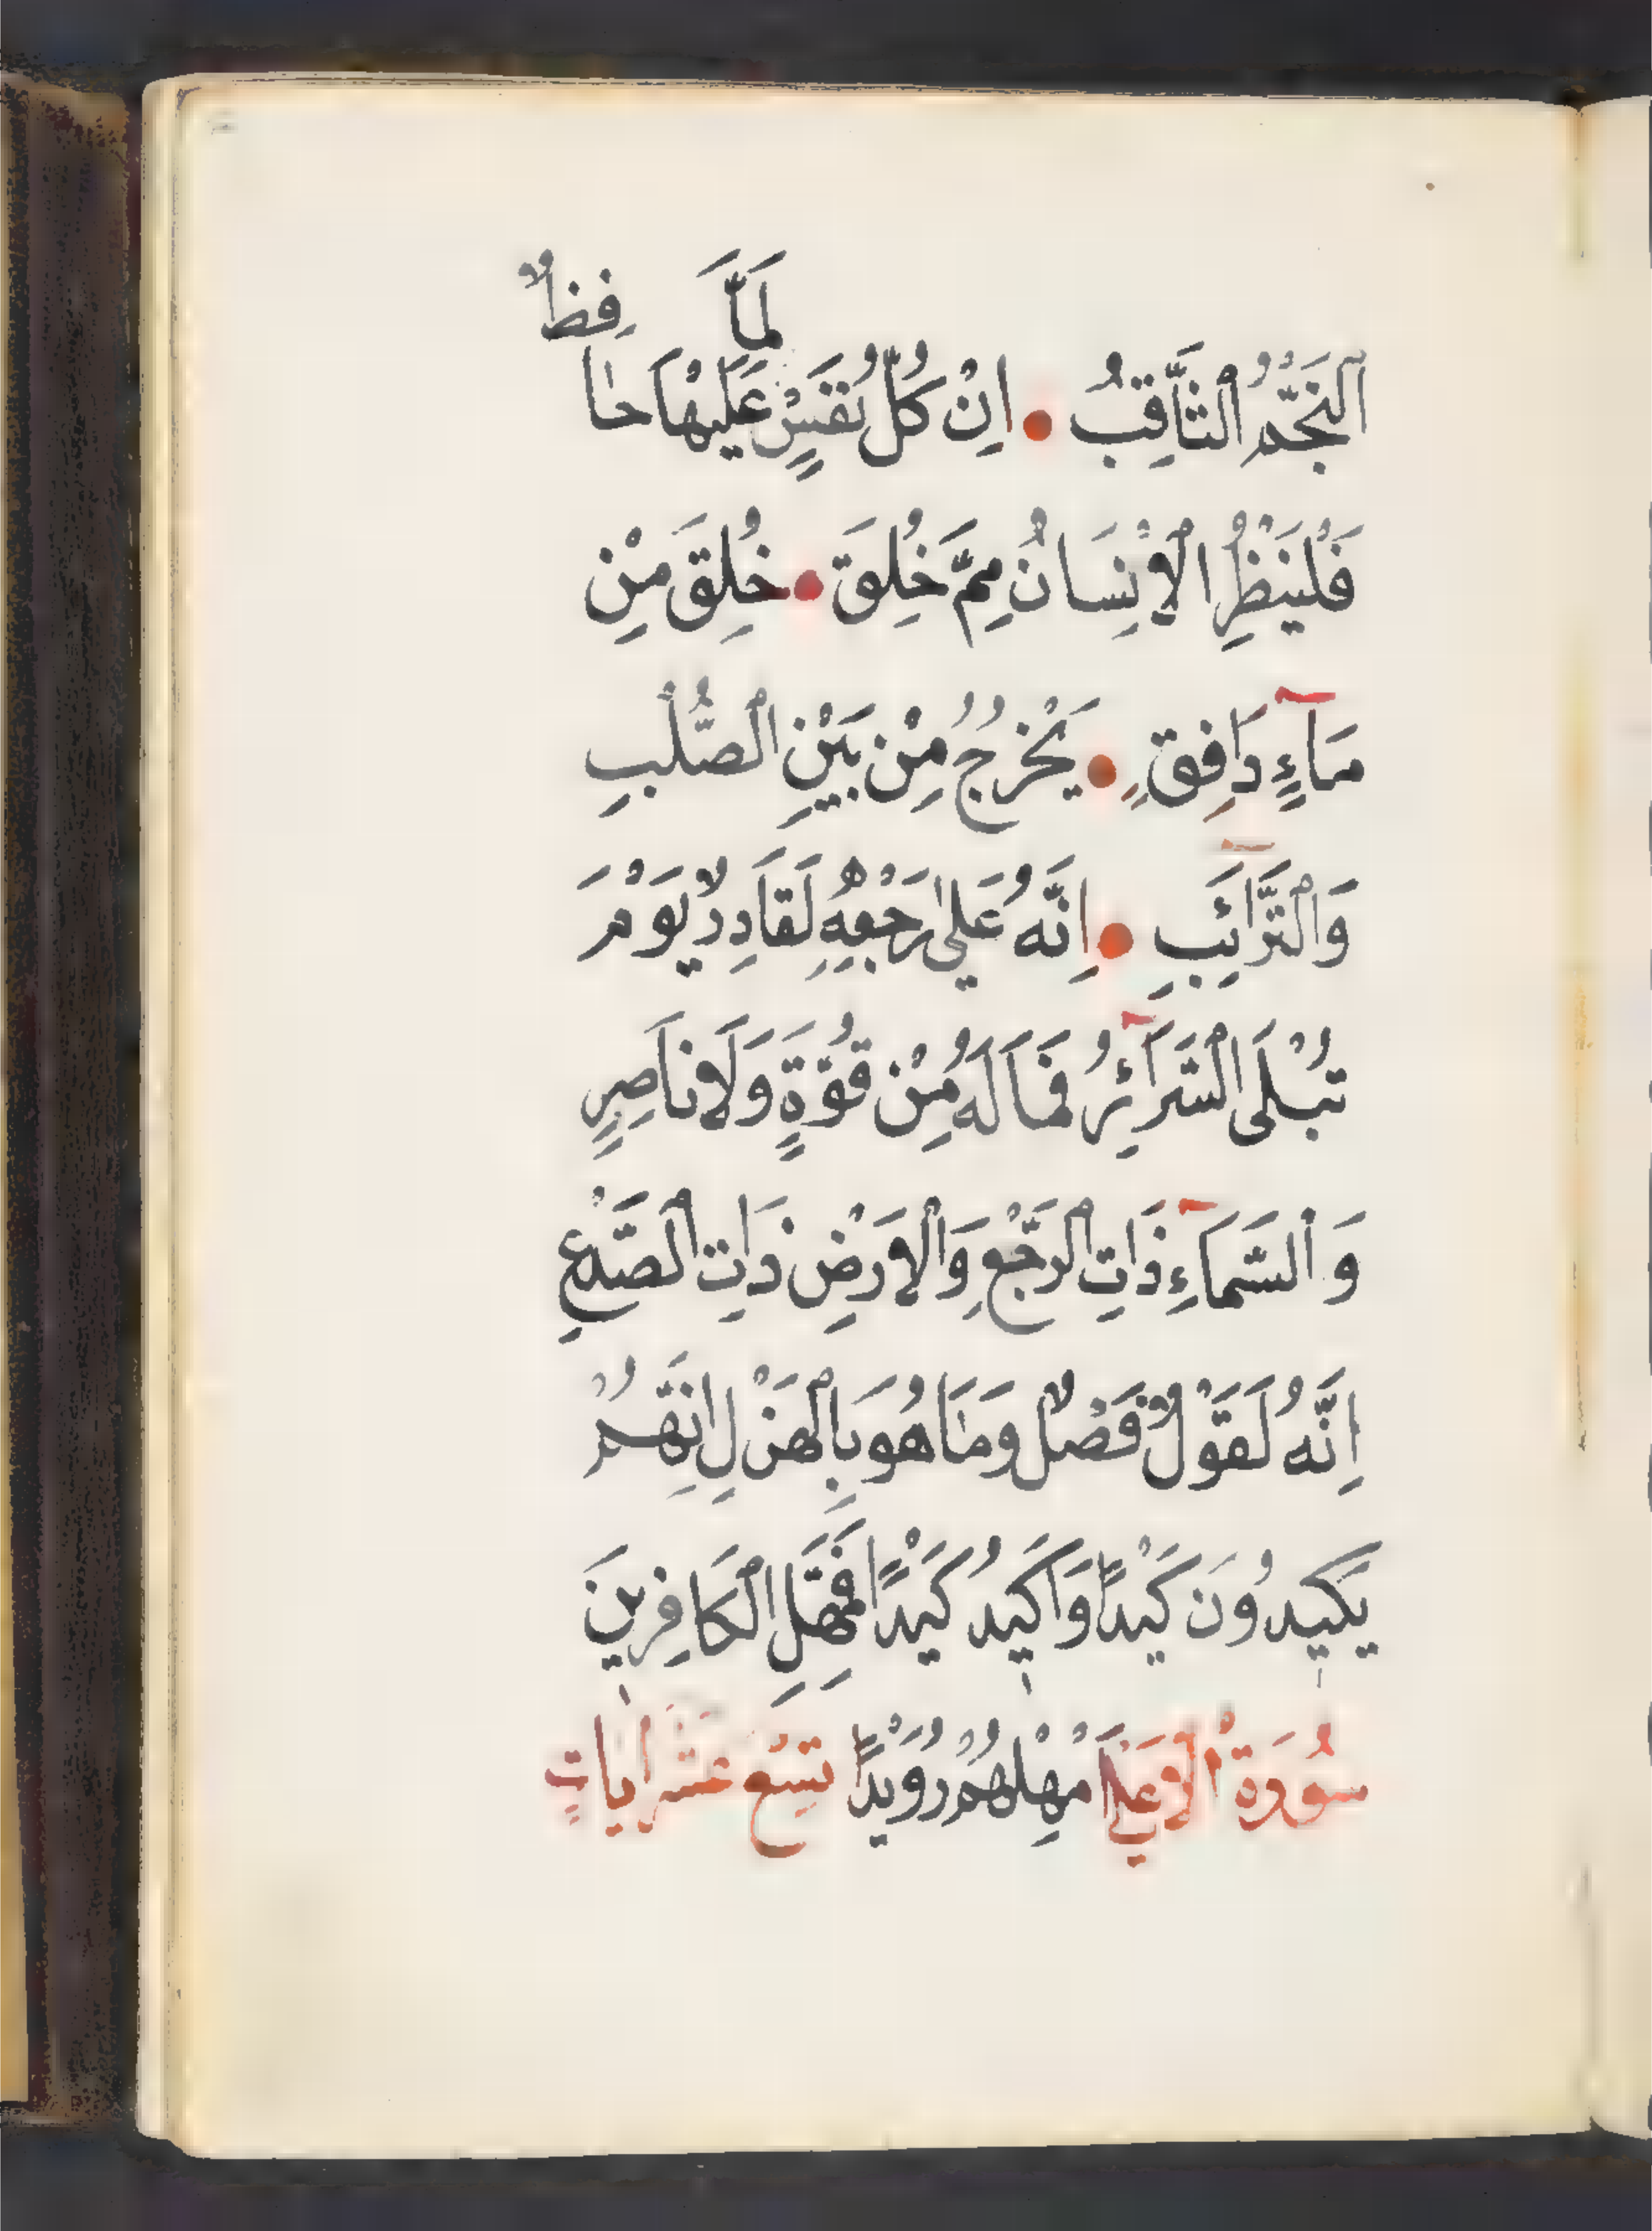 لَمَّا فِظٌ
اَلنَّجْمُ الثَّاقِبُ اِنْ كُلُّ نَفْسٍ عَلَيْهَا حَا
فَلْيَنْظُرِ الْاِنْسَانُ مِمَّ خُلِقَ خُلِقَ مِنْ
مَآءٍ دَافِقٍ يَخْرُجُ مِنْ بَيْنِ الصُّلْبِ
وَالتَّرَآئِبِ اِنَّهُ عَلٰى رَجْعِهِ لَقَادِرٌ يَوْمَ
تُبْلَى السَّرَآئِرُ فَمَا لَهُ مِنْ قُوَّةٍ وَلَا نَاصِرٍ
وَالسَّمَآءِ ذَاتِ الرَّجْعِ وَالْاَرْضِ ذَاتِ الصَّدْعِ
اِنَّهُ لَقَوْلٌ فَصْلٌ وَمَا هُوَ بِالْهَزْلِ اِنَّهُمْ
يَكِيدُونَ كَيْدًا وَاَكِيدُ كَيْدًا فَمَهِّلِ الْكَافِرِينَ
سُورَةُ الْاَعْلٰى اَمْهِلْهُمْ رُوَيْدًا تِسْعَ عَشَرَ اٰيَاتٍ